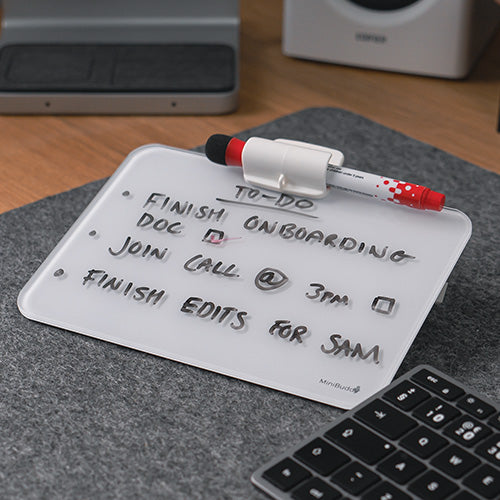 EDIFIER
TO-DO
FINISH ONBOARDING
DOC
JOIN CALL @ 3PM
FINISH EDITS FOR SAM
MiniBuddy